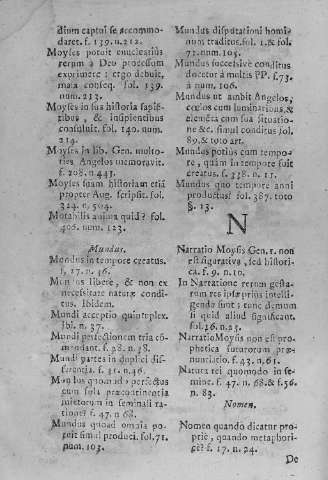 dium captui se accommo-
daret. f. 139. n. 212.
Moyses potuit enucleatius
rerum a Deo processum
exprimere : ergo debuit,
mala conseq. fol. 139.
num. 213.
Moyses in sua historia sapien-
tibus, & insipientibus
consuluit. fol. 140. num.
214.
Moyses in lib. Gen. multo-
ties Angelos memoravit.
f. 208. n. 443.
Moyses suam historiam etiã
propter Aug. scripsit. fol.
324. n. 504.
Motabilis avium quid? fol.
406. num. 123.
Mundus.
Mundus in tempore creatus.
f. 17. n. 36.
Mundus libere, & non ex
necessitate naturæ condi-
tus. Ibidem.
Mundi acceptio quintuplex.
Ibi. n. 37.
Mundi perfectionem tria cõ-
mendant. f. 28. n. 38.
Mundi partes in duplici dif-
ferentia. f. 41. n. 46.
Mundus quomodo perfectus
cum sola præcontinentia
mistorum in seminali ra-
tione? f. 47. n. 68.
Mundus quoad omnia po-
tuit simul produci. fol. 71.
num. 103.
Mundus disputationi homi-
num traditus. fol. 1. & fol.
72. num. 105.
Mundus successive conditus
docetur à multis PP. f. 73.
à num. 106.
Mundus ut ambit Angelos,
cœlos cum luminaribus, &
elementa cum sua situatio-
ne &c. simul conditus fol.
89. & toto art.
Mundus potius cum tempo-
re, quàm in tempore fuit
creatus. f. 338. n. 11.
Mundus quo tempore anni
productus? fol. 387. toto
§. 13.
N
Narratio Moysis Gen. 1. non
est figurativa, sed histori-
ca. f. 9. n. 10.
In Narratione rerum gesta-
rum res ipsæ prius intelli-
gendæ sunt ; tenc demum
si quid aliud significant.
fol. 16. n. 25.
Narratio Moysis non est pro-
phetica futurorum præ-
nuntiatio. f. 43. n. 61.
Naturæ rei quomodo in se-
mine. f. 47. n. 68. & f. 56.
n. 83.
Nomen.
Nomen quando dicatur pro-
prie, quando metaphori-
ce? f. 17. n. 24.
De